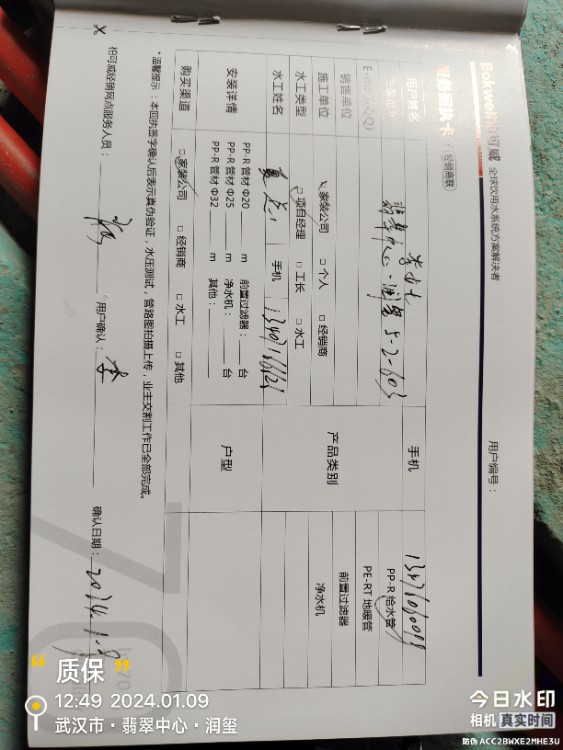 Bokwell柏可威 全球饮用水系统方案解决者
用户编号：
服务回执卡 (经销商联)
用户姓名
手机
翡翠中心-润玺5-2-603
E-mail(QQ)
销售单位
施工单位 □家装公司 □个人 □经销商
水工类型 □项目经理 □工长 □水工
水工姓名
手机
产品类别
PP-R 给水管
PE-RT 地暖管
前置过滤器
净水机
安装详情
PP-R 管材 Φ20 ____ m 前置过滤器：____ 台
PP-R 管材 Φ25 ____ m 净水机：____ 台
PP-R 管材 Φ32 ____ m 其他：
户型
购买渠道 □家装公司 □经销商 □水工 □其他
*温馨提示：本回执签字确认后表示真伪验证，水压测试，管路图拍摄上传，业主交割工作已全部完成。
柏可威经销网点服务人员：
用户确认：李
确认日期：2024.1.9
质保
12:49 2024.01.09
武汉市·翡翠中心·润玺
今日水印
相机 真实时间
防伪 ACC2BWXE2MHE3U